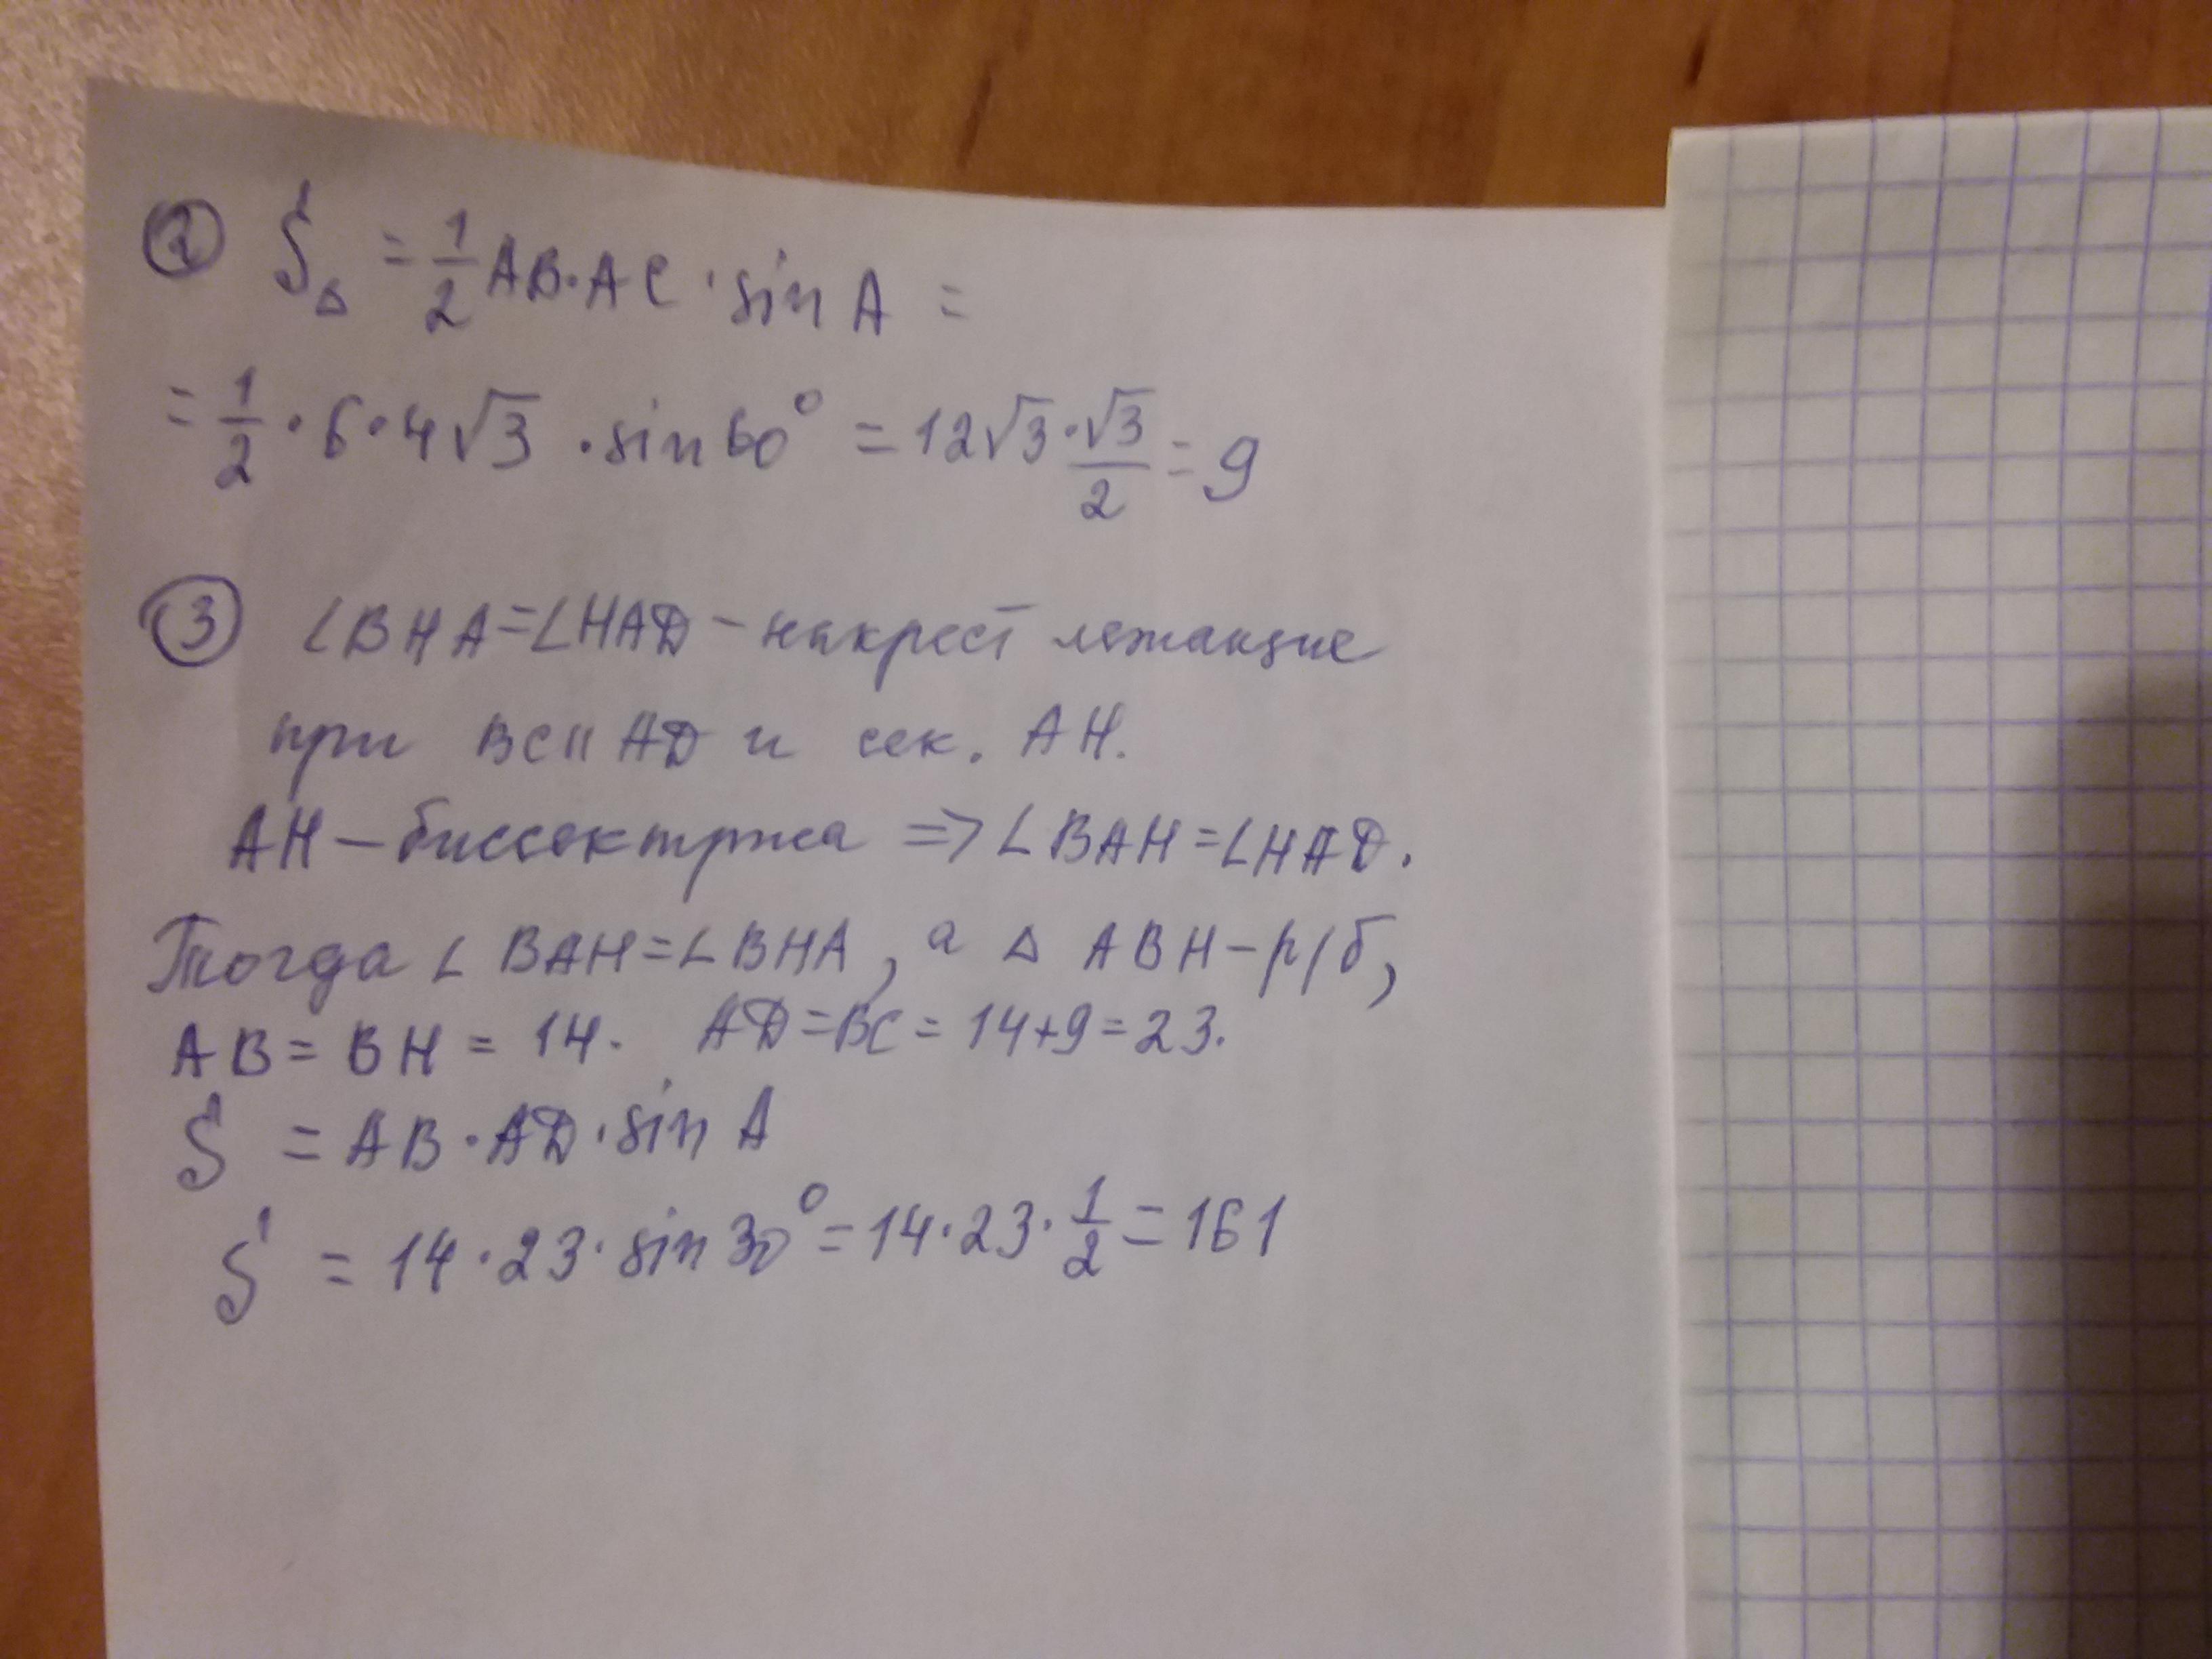 ② S△ = 1/2 AB·AC·sin A =
= 1/2 · 6 · 4√3 · sin 60° = 12√3 · √3/2 = 9
③ ∠BHA = ∠HAD – накрест лежащие
при BC || AD и сек. AH.
AH – биссектриса => ∠BAH = ∠HAD.
Тогда ∠BAH = ∠BHA, а △ABH – р/б,
AB = BH = 14. AD = BC = 14+9 = 23.
S = AB · AD · sin A
S = 14 · 23 · sin 30° = 14 · 23 · 1/2 = 161